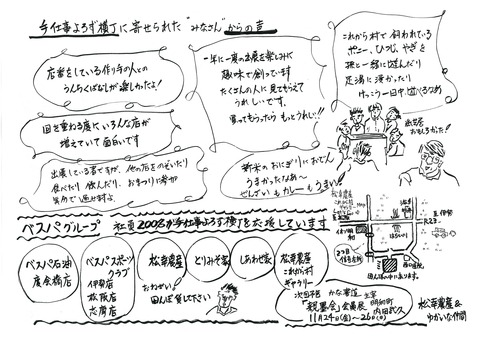 手仕事よろず横丁に寄せられた"みなさん"からの声
店番をしている作り手の人との
うんちくばなしが楽しかったよ!
回を重ねる度にいろんな店が
増えていて面白いです
出展している者ですが、他の店をのぞいたり
食べたり飲んだり、おまつり気分
一年に一度の出展を楽しみに
趣味で創っています
たくさんの人に見てもらえて
うれしいです。
買ってもらったらもっとうれしい!!
新米のおにぎりにおでん
うまかったなあ〜
ぜんざいもカレーもうまい!
これから村で飼われている
ポニー、ひつじ、やぎを
孫と一緒に遊んだり
足湯に浸かったり
けっこう一日中遊べるなあ
おもしろかった!
ベスパグループ
社員200名が手仕事よろず横丁を応援しています
ベスパ石油
度会橋店
ベスパスポーツ
クラブ
伊勢店
松阪店
志摩店
松幸農産
とりみそ家
しあわせ家
松幸農産
これから村
ギャラリー
おねがい!
田んぼ貸して下さい
次回予告
かな書道
「親墨会」会員展
明和町
11月24日(金)〜26日(日)
至伊勢
R23
田んぼの中にあります。
松幸農産&
ゆかいな仲間